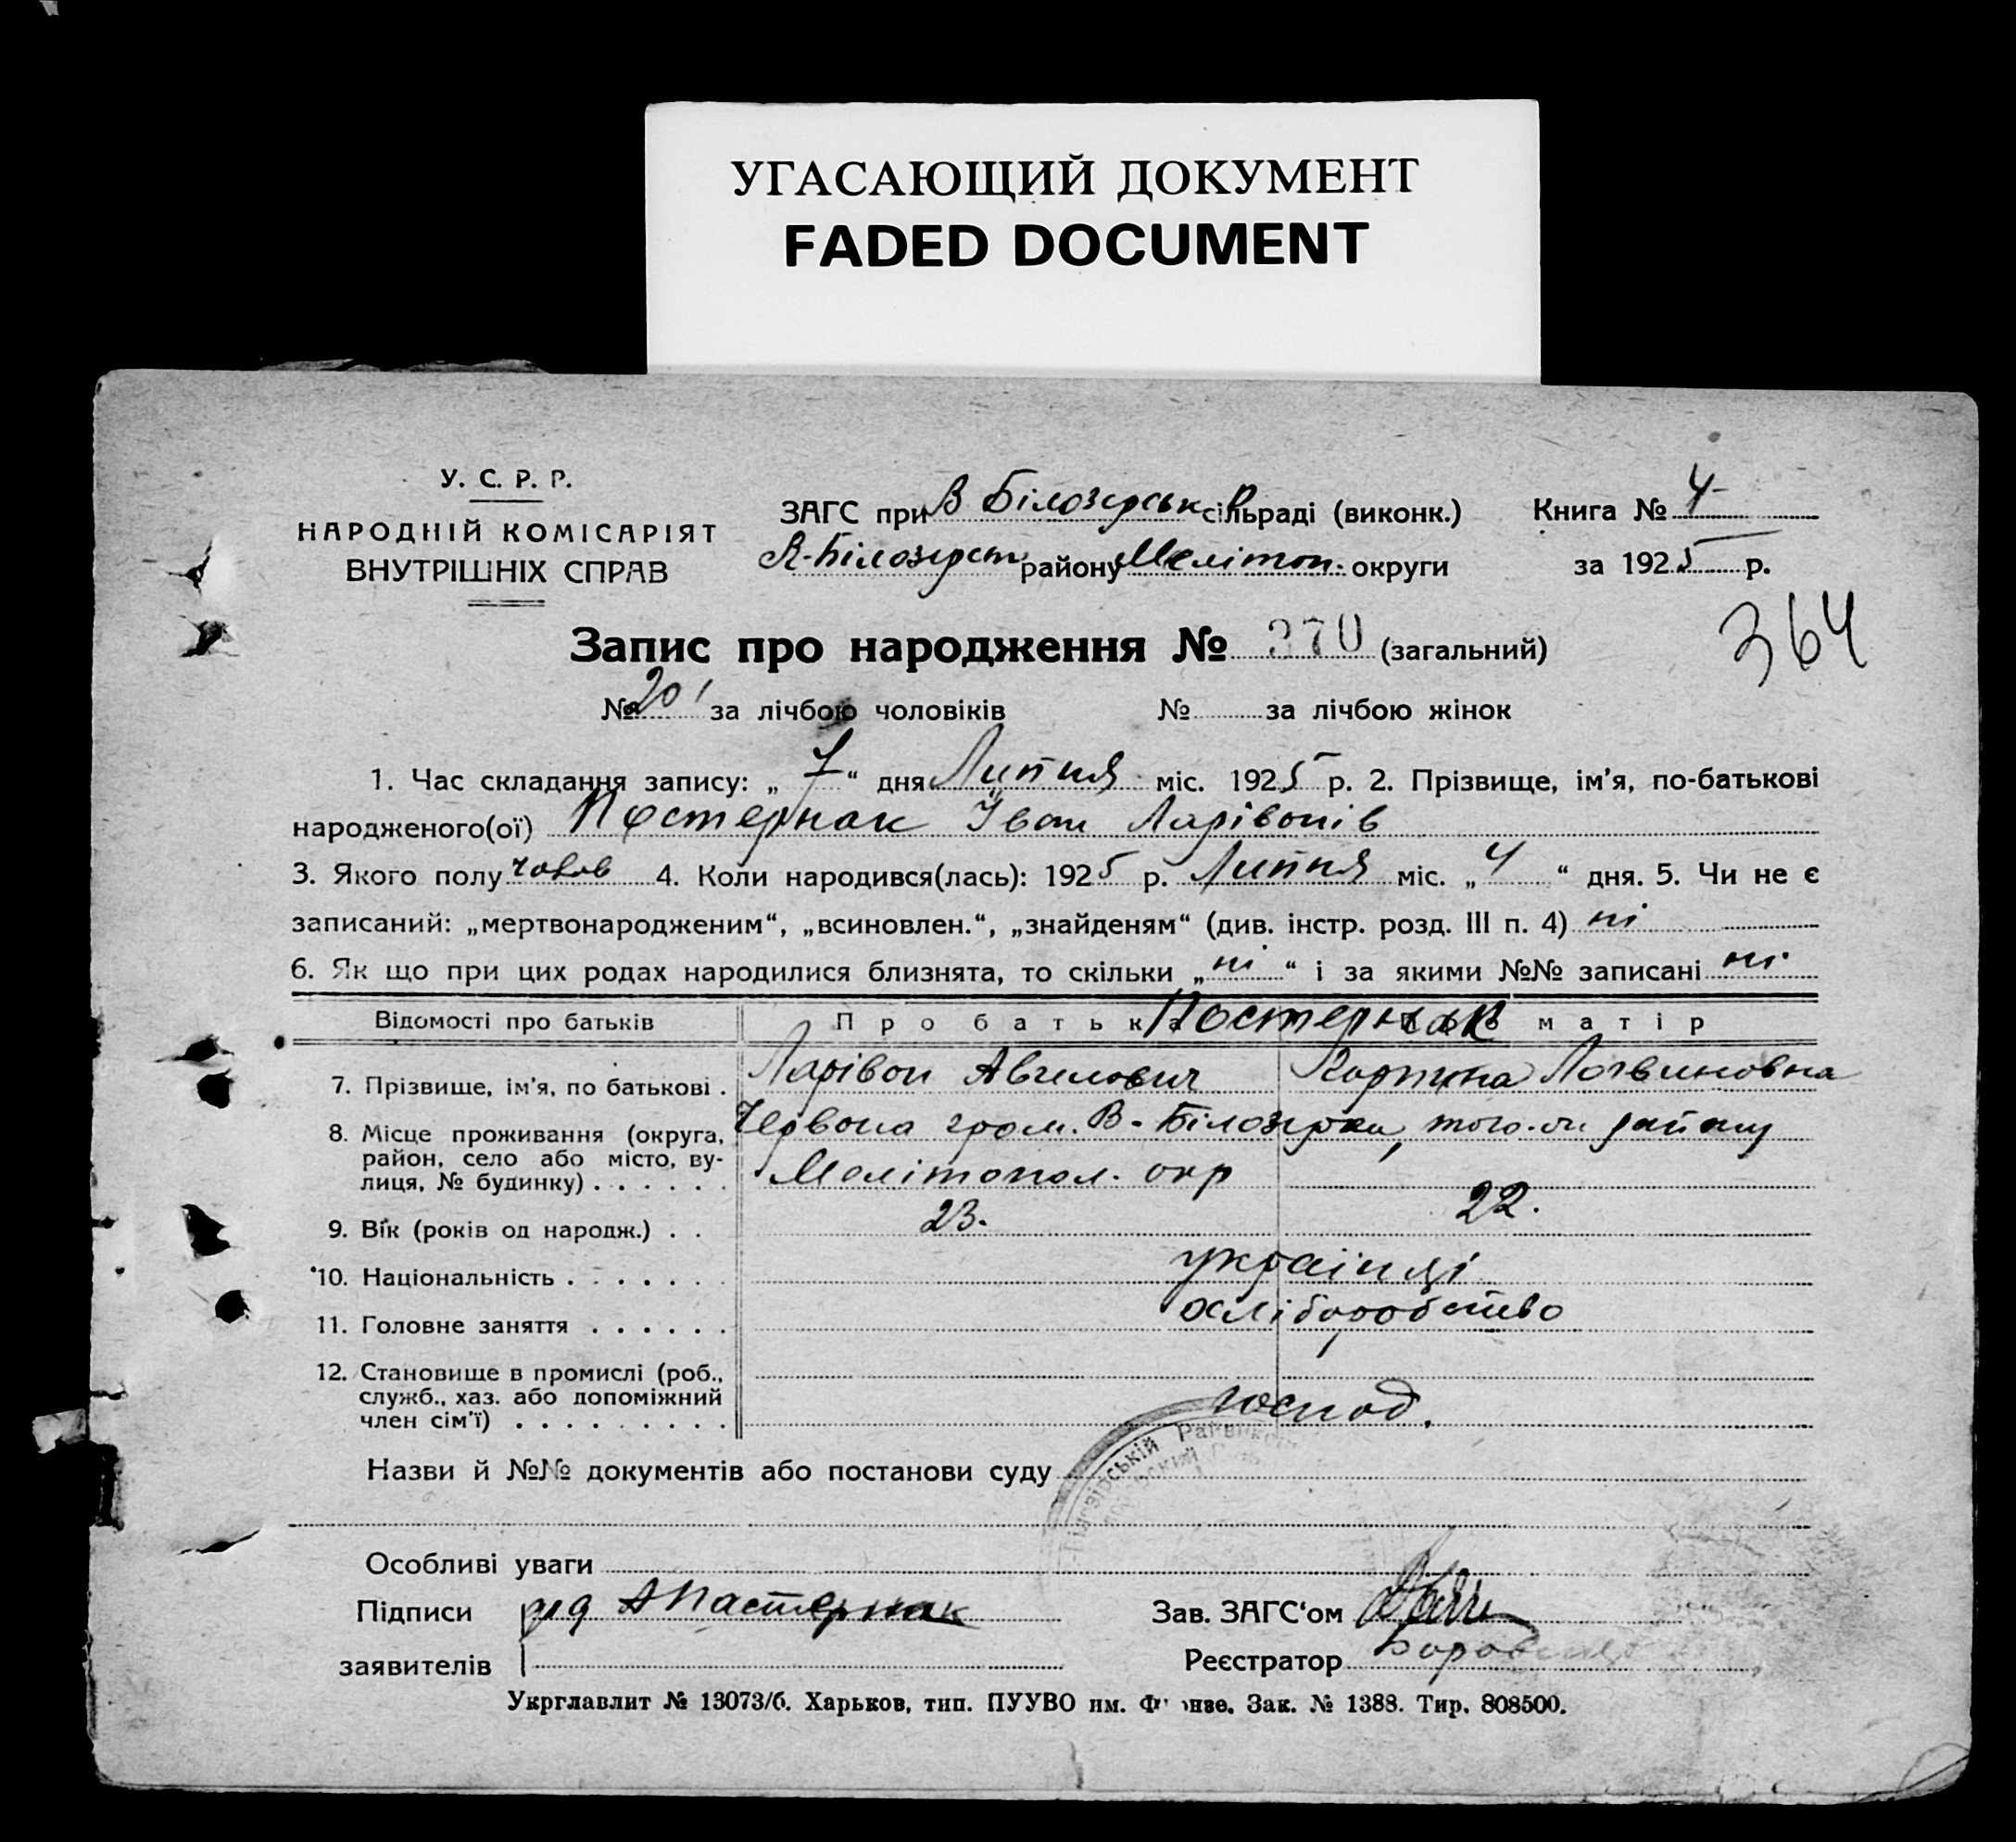 УГАСАЮЩИЙ ДОКУМЕНТ
FADED DOCUMENT
У. С. Р. Р.
НАРОДНІЙ КОМІСАРІЯТ
ВНУТРІШНІХ СПРАВ
ЗАГС при В Білозерськ сільраді (виконк.)
В-Білозерск району Мелітоп. округи
Книга № 4
за 1925 р.
364
Запис про народження № 370 (загальний)
№ 201 за лічбою чоловіків № за лічбою жінок
1. Час складання запису: „ 7 “ дня Липня міс. 1925 р. 2. Прізвище, ім’я, по-батькові
народженого(ої) Постернак Іван Ларівонів
3. Якого полу чолов 4. Коли народився(лась): 1925 р. Липня міс. „ 4 “ дня. 5. Чи не є
записаний: „мертвонародженим“, „всиновлен.“, „знайденям“ (див. інстр. розд. III п. 4) ні
6. Як що при цих родах народилися близнята, то скільки „ ні “ і за якими №№ записані ні
Відомості про батьків Про батька Постернак Про матір
7. Прізвище, ім’я, по батькові . Ларівон Логвиновна
8. Місце проживання (округа, Червона гром. В-Білозерка, району
район, село або місто, ву-
лиця, № будинку) . . . . . . Мелітопол. окр
9. Вік (років од народж.) . . 23. 22.
10. Національність . . . . . . . українці
11. Головне заняття . . . . . . хліборобство
12. Становище в промислі (роб.,
служб., хаз. або допоміжний
член сім’ї) . . . . . . . . . господ.
Назви й №№ документів або постанови суду
Особливі уваги
Підписи дід А Пастернак Зав. ЗАГС‘ом
заявителів Реєстратор
Укрглавлит № 13073/б. Харьков, тип. ПУУВО им. Зак. № 1388. Тир. 808500.